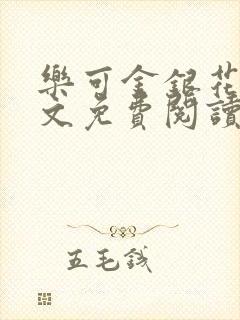 樂可金銀花
文免費閱讀
五毛錢